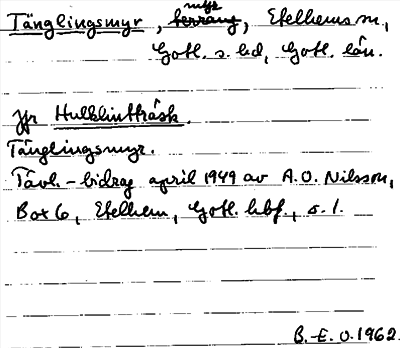 Tänglingsmyr, myr, Etelhems sn,
Gotl. s. hd, Gotl. län.
Jfr Hulklintträsk.
Tänglingsmyr.
Tävl.-bidrag april 1949 av A.O. Nilsson,
Box 6, Etelhem, Gotl. hbf., s. 1.
B.-E. O. 1962.